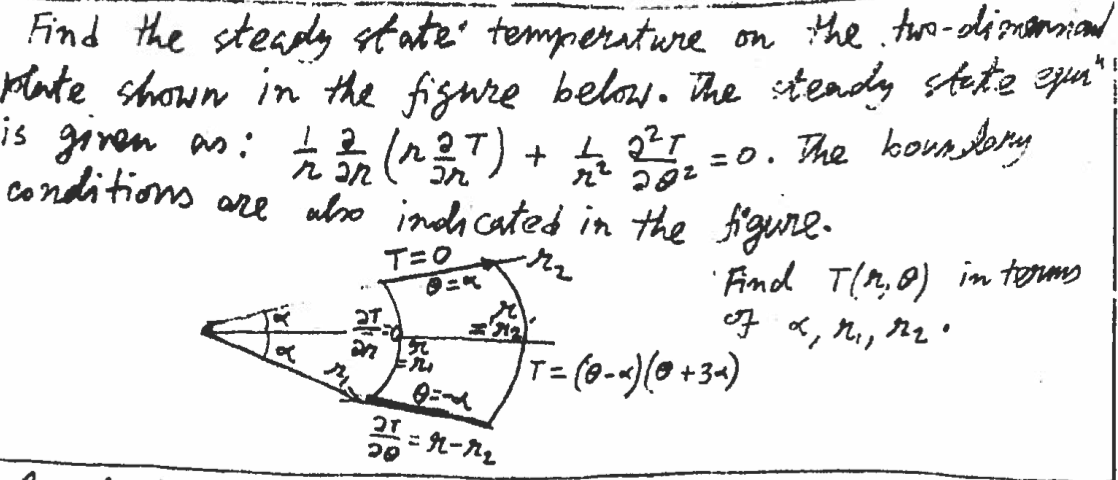 Find the steady state temperature on the two-dimensional
plate shown in the figure below. The steady state equⁿ
is given as: 1/r ∂/∂r (r ∂/∂r T) + 1/r² ∂²T/∂θ² = 0. The boundary
conditions are also indicated in the figure.
T=0
r₂
θ=α
Find T(r,θ) in terms
of α, r₁, r₂.
α
α
∂T/∂r=0
r=r₁
r=r₂
r₁
θ=-α
T=(θ-α)(θ+3α)
∂T/∂θ = r-r₂